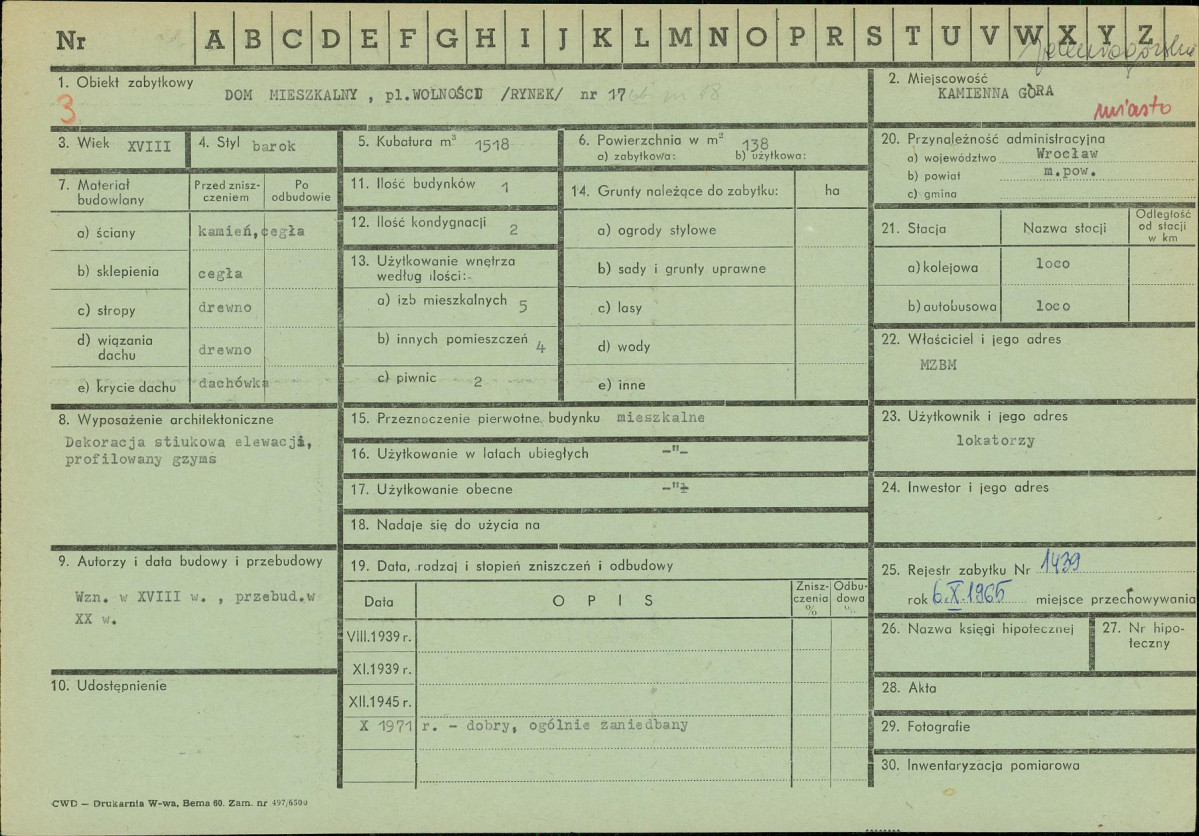 Nr A B C D E F G H I J K L M N O P R S T U V W X Y Z
jeleniogórskie
1. Obiekt zabytkowy
3
DOM MIESZKALNY , pl.WOLNOŚCI /RYNEK/ nr 17
2. Miejscowość
KAMIENNA GÓRA
miasto
3. Wiek XVIII
4. Styl barok
5. Kubatura m³ 1518
6. Powierzchnia w m² 138
a) zabytkowa: b) użytkowa:
20. Przynależność administracyjna
a) województwo Wrocław
b) powiat m.pow.
c) gmina
7. Materiał budowlany
Przed znisz-czeniem
Po odbudowie
a) ściany kamień,cegła
b) sklepienia cegła
c) stropy drewno
d) wiązania dachu drewno
e) krycie dachu dachówka
11. Ilość budynków 1
12. Ilość kondygnacji 2
13. Użytkowanie wnętrza
według ilości:-
a) izb mieszkalnych 5
b) innych pomieszczeń 4
c) piwnic 2
14. Grunty należące do zabytku: ha
a) ogrody stylowe
b) sady i grunty uprawne
c) lasy
d) wody
e) inne
21. Stacja
Nazwa stacji
Odległość od stacji w km
a) kolejowa loco
b) autobusowa loco
22. Właściciel i jego adres
MZBM
8. Wyposażenie architektoniczne
Dekoracja stiukowa elewacji,
profilowany gzyms
15. Przeznoczenie pierwotne budynku mieszkalne
16. Użytkowanie w latach ubiegłych -"-
17. Użytkowanie obecne -"-
18. Nadaje się do użycia na
23. Użytkownik i jego adres
lokatorzy
24. Inwestor i jego adres
9. Autorzy i data budowy i przebudowy
Wzn. w XVIII w. , przebud.w
XX w.
10. Udostępnienie
19. Data, rodzaj i stopień zniszczeń i odbudowy
Data
O P I S
Znisz-czenia %
Odbu-dowa %
VIII.1939 r.
XI.1939 r.
XII.1945 r.
X 1971 r. - dobry, ogólnie zaniedbany
25. Rejestr zabytku Nr 1439
rok 6.X.1965 miejsce przechowywania
26. Nazwa księgi hipotecznej
27. Nr hipo-
teczny
28. Akta
29. Fotografie
30. Inwentaryzacja pomiarowa
CWD — Drukarnia W-wa, Bema 60. Zam. nr 497/6500